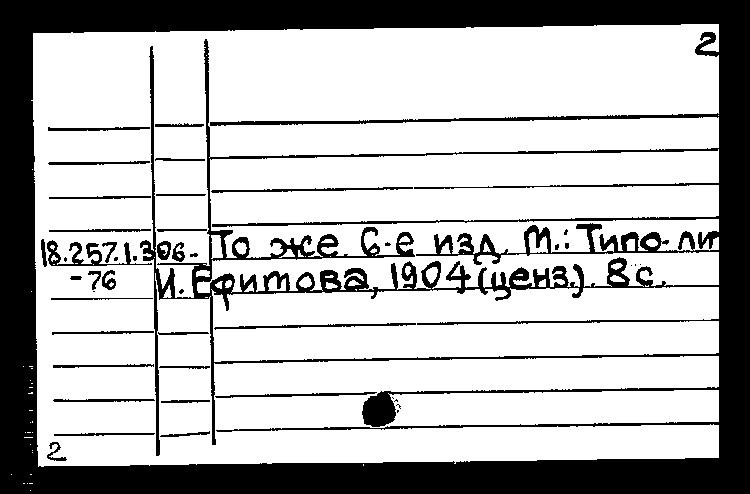 2
18.257.1.306- То же. 6-е изд. М.: Типо-лит
-76 И. Ефитова, 1904 (ценз.). 8 с.
2